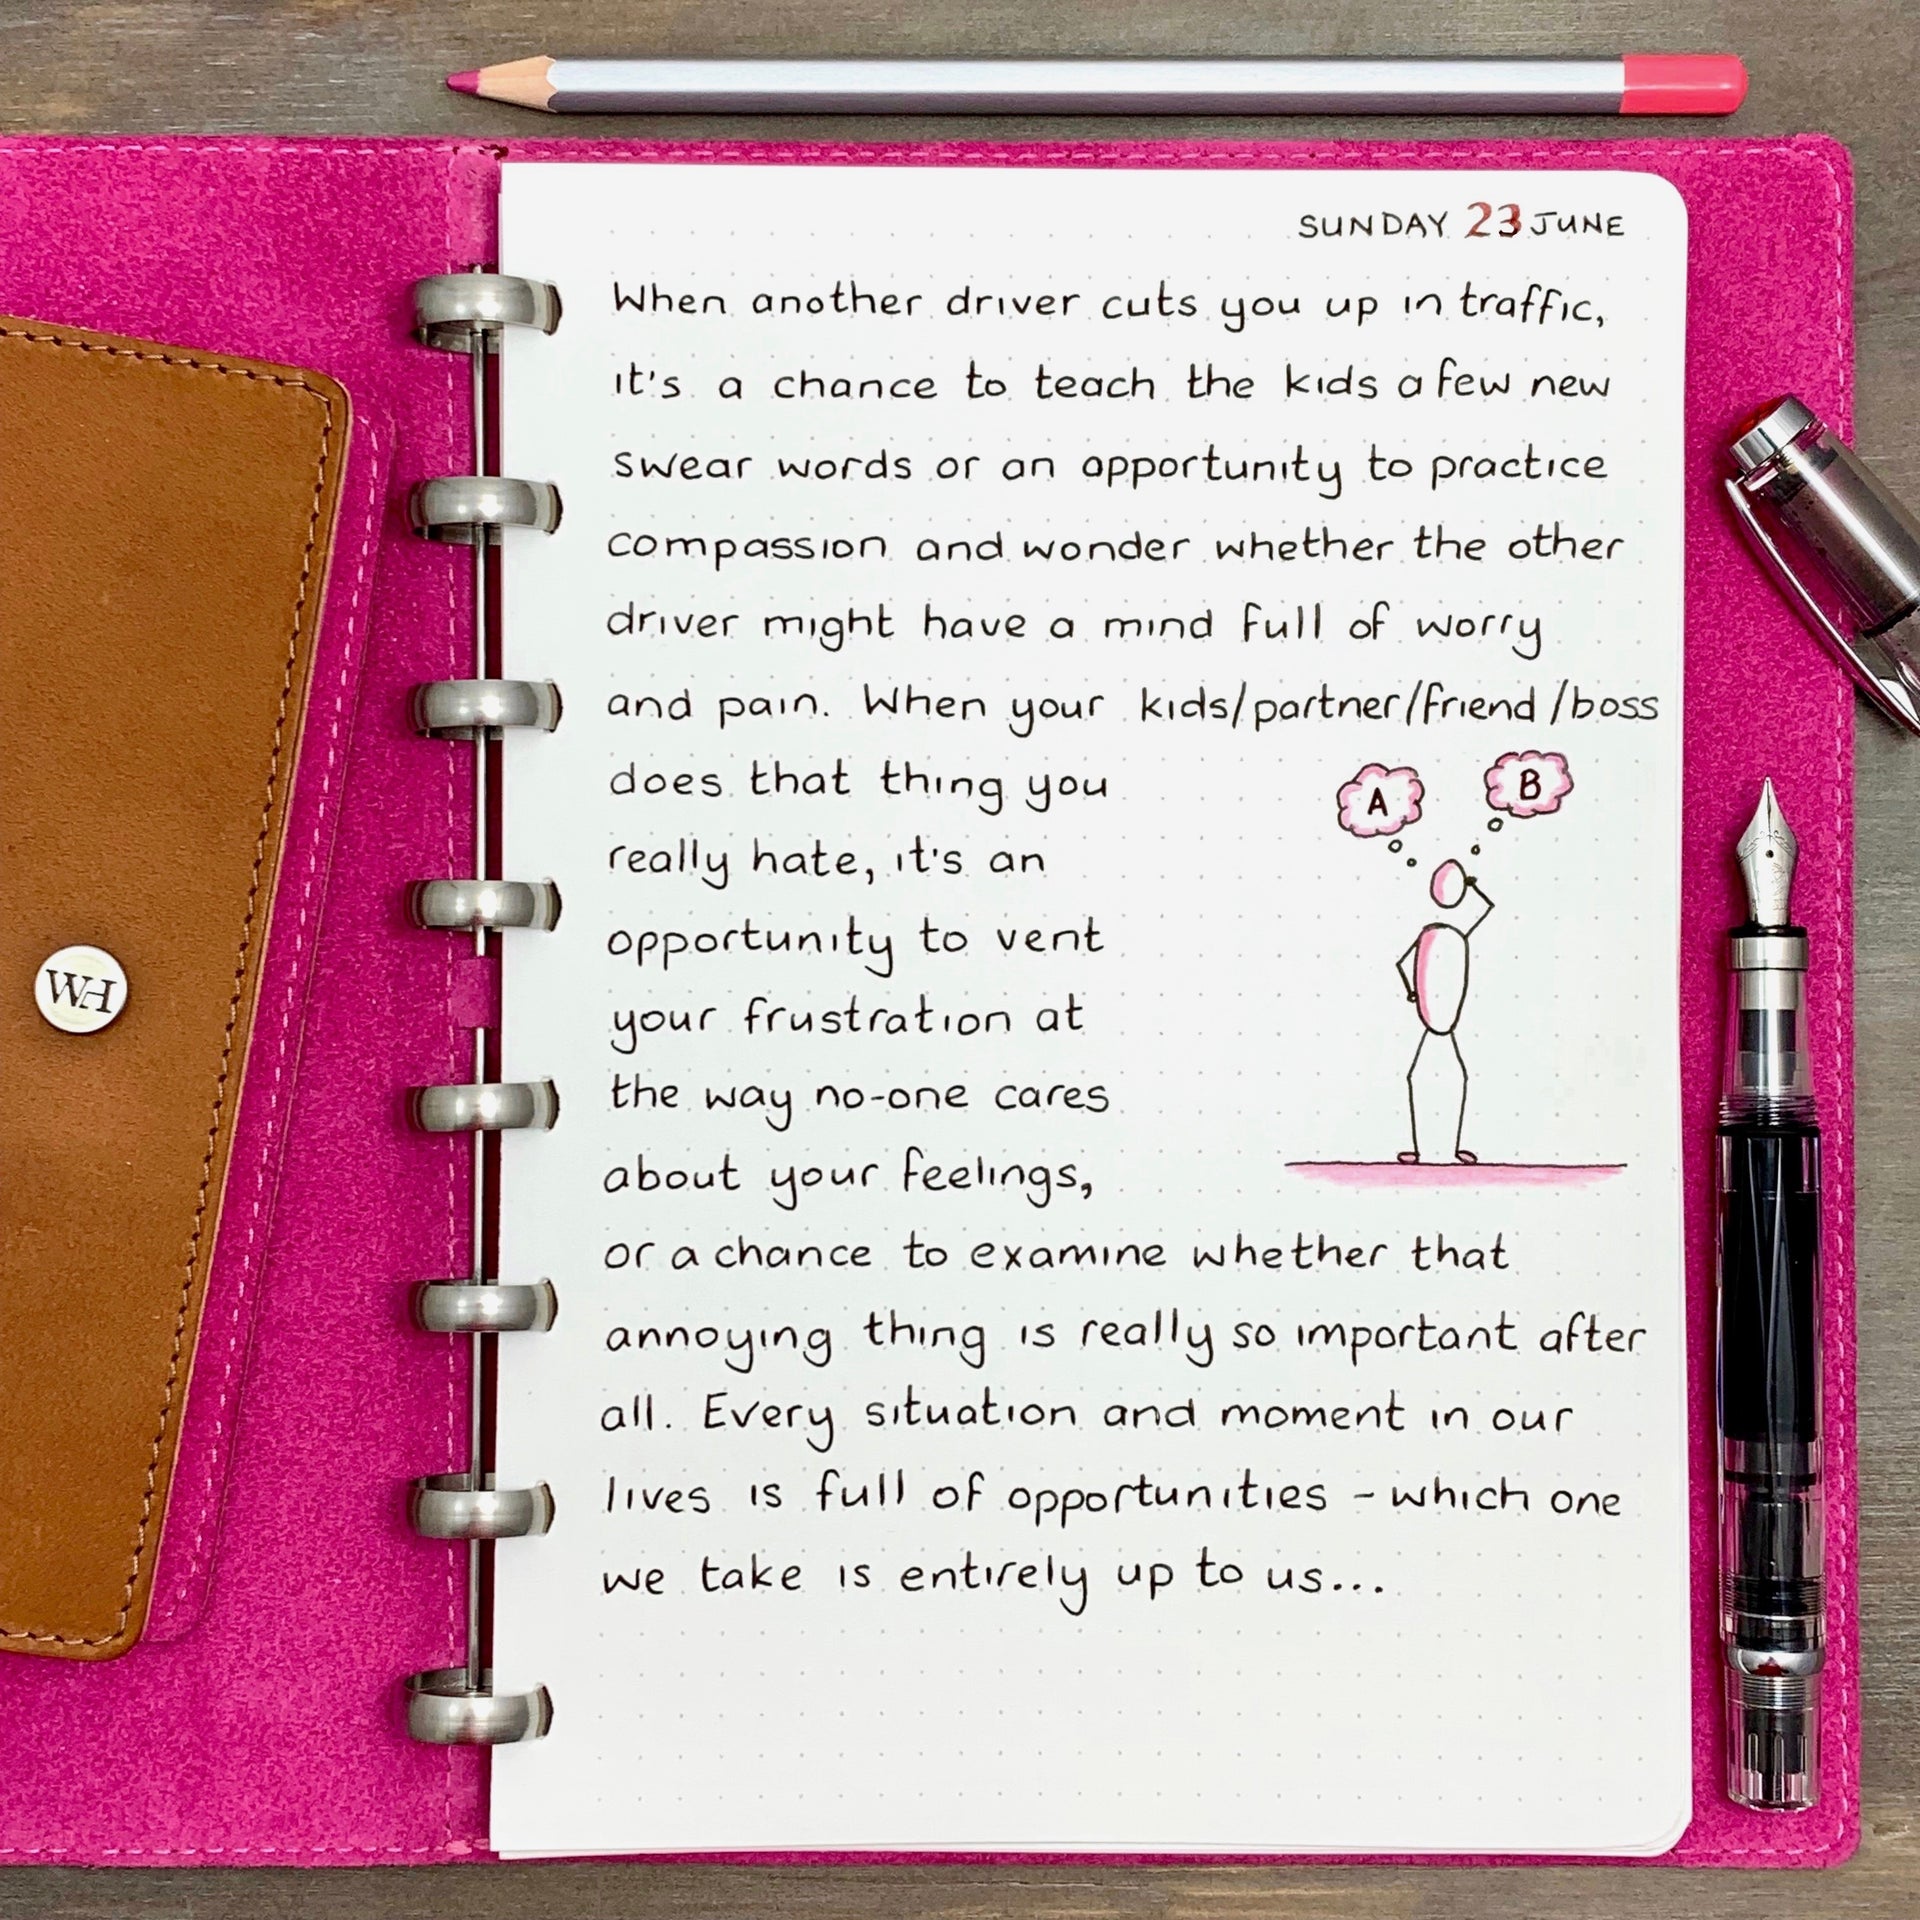 SUNDAY 23 JUNE
When another driver cuts you up in traffic,
it's a chance to teach the kids a few new
swear words or an opportunity to practice
compassion and wonder whether the other
driver might have a mind full of worry
and pain. When your kids/partner/friend/boss
does that thing you
really hate, it's an
opportunity to vent
your frustration at
the way no-one cares
about your feelings,
or a chance to examine whether that
annoying thing is really so important after
all. Every situation and moment in our
lives is full of opportunities - which one
we take is entirely up to us...
A
B
WH